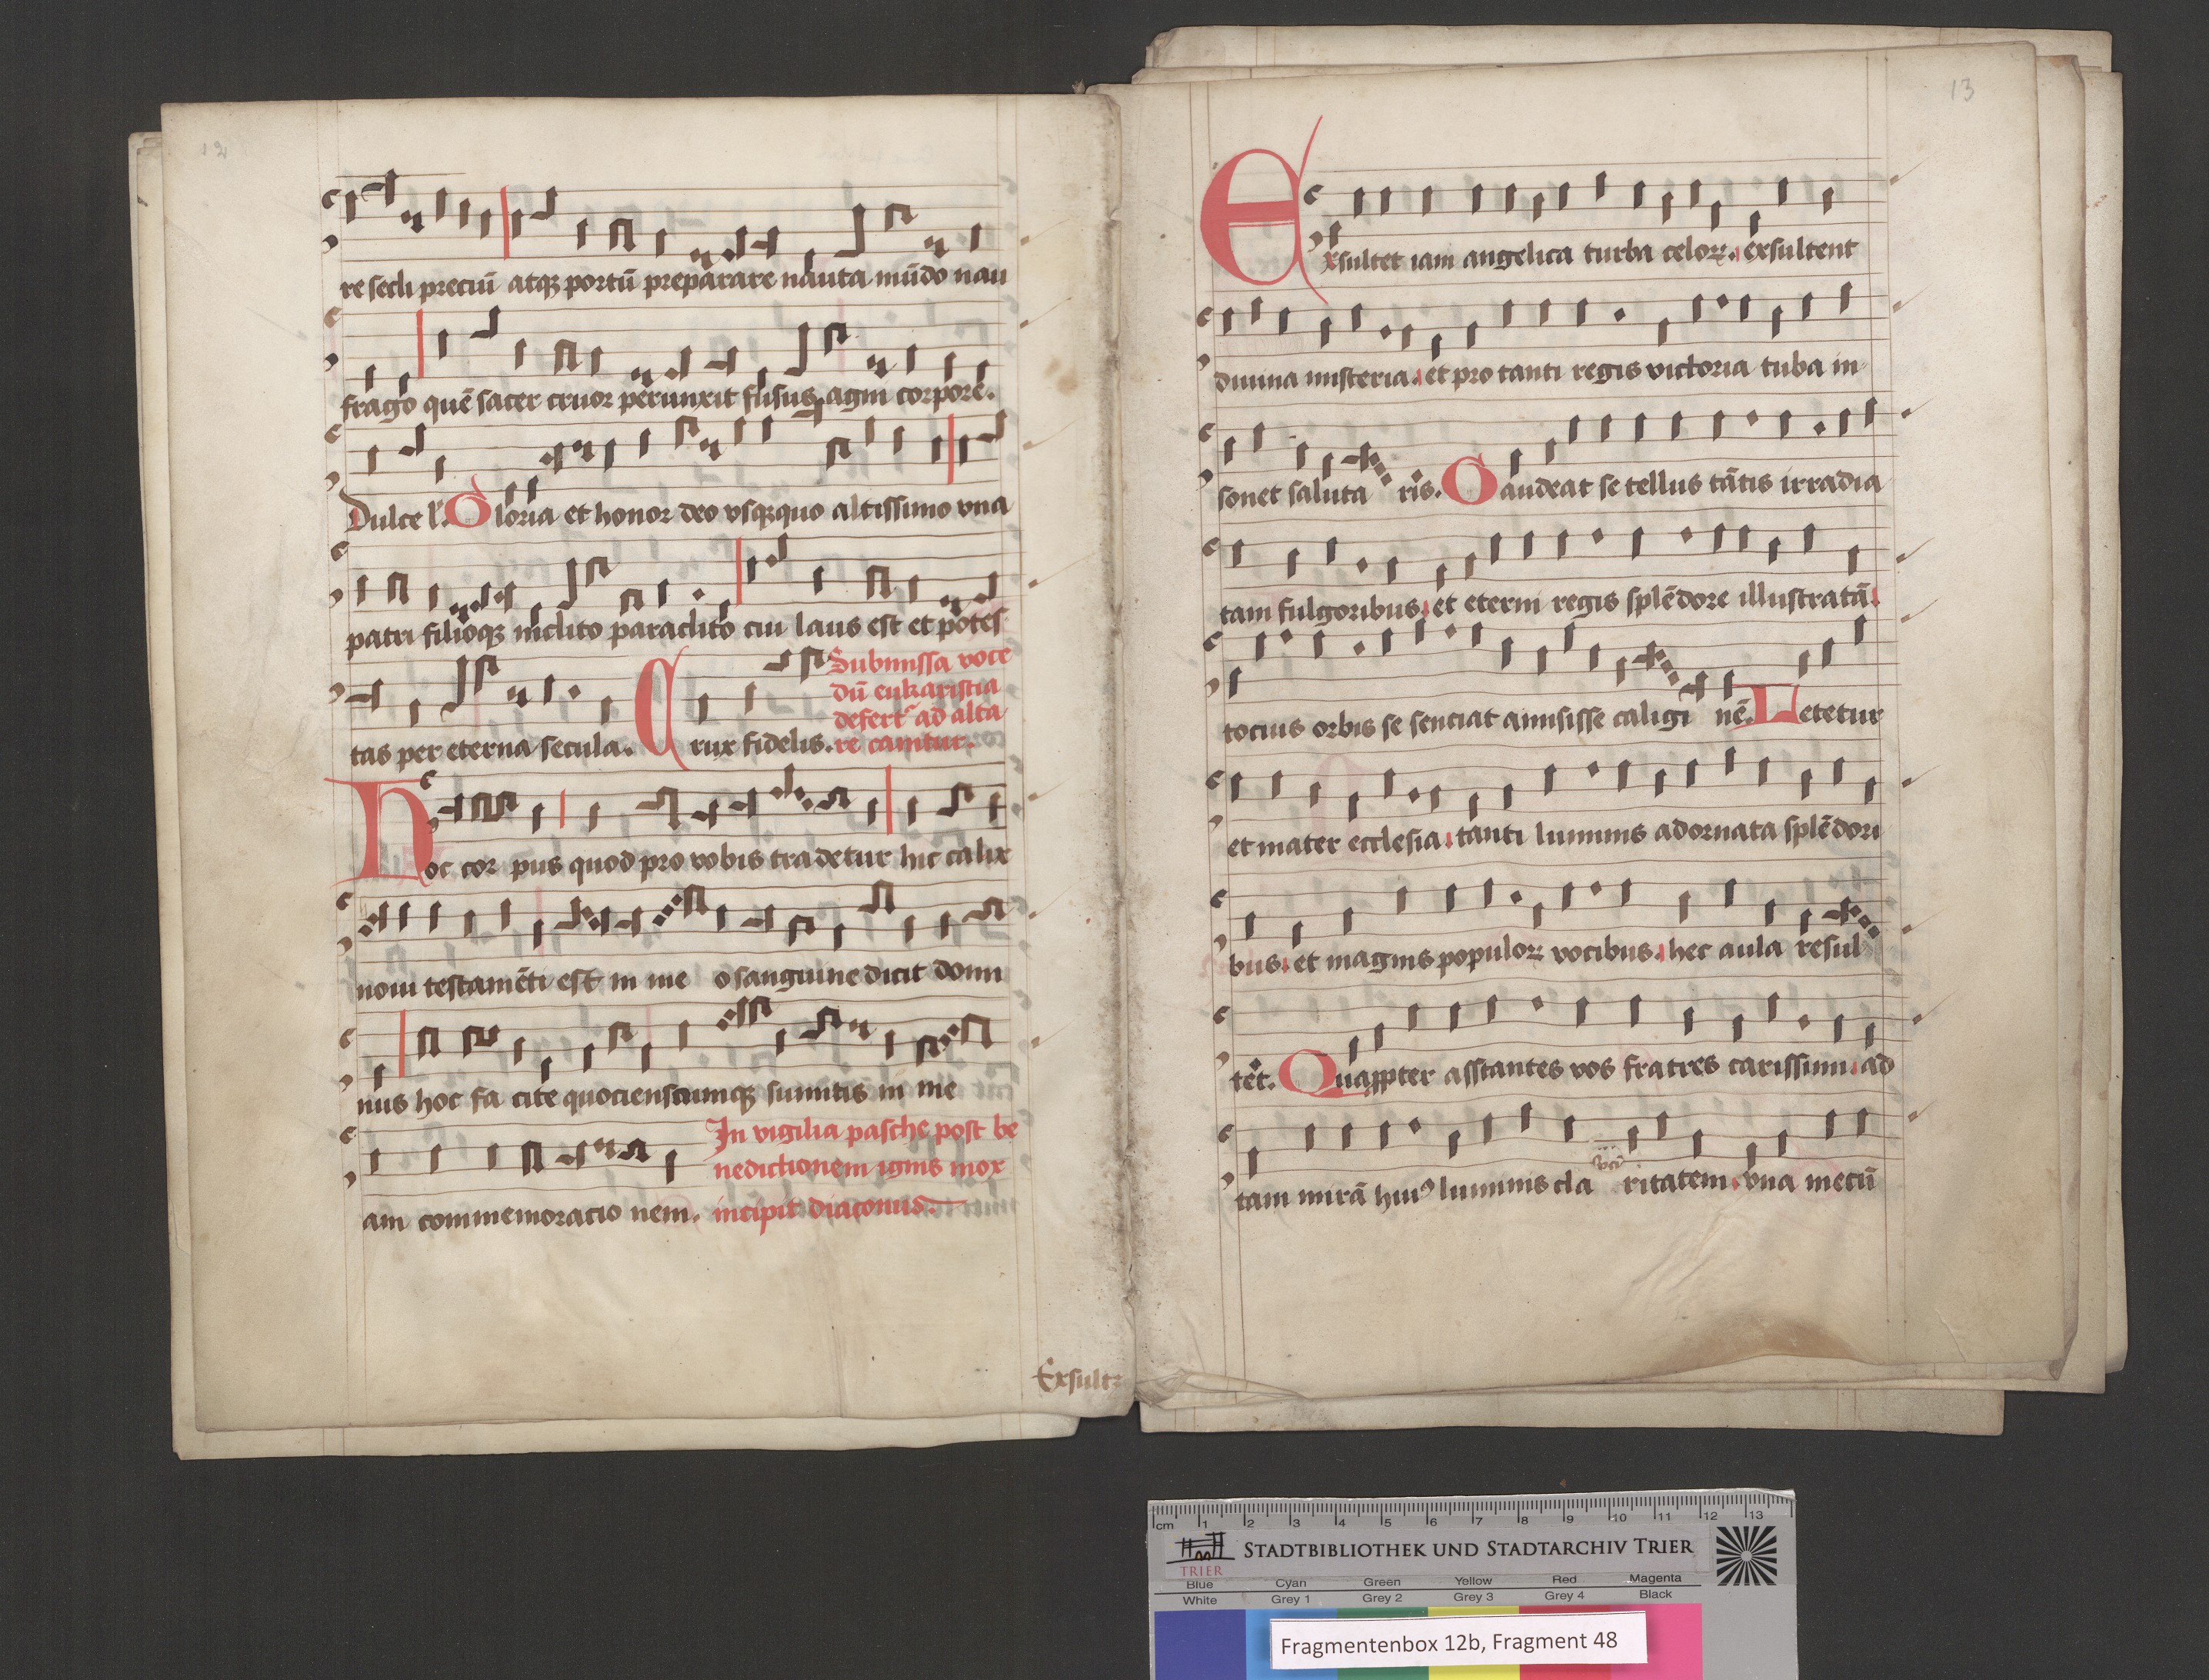 12
re secli preciū atqꝫ portū preparare nauta mūdo nau
frago quē sacer cruor perunxit fusus agni corpore.
Dulce l. Gloria et honor deo vsqꝫquo altissimo vna
patri filioqꝫ inclito paraclito cui laus est et potes
tas per eterna secula. Crux fidelis.
Submissa voce
dū eukaristia
defert᷑ ad alta
re canitur.
Hoc cor pus quod pro vobis tradetur hic calix
noui testamēti est in me o sanguine dicit domi
nus hoc fa cite quocienscumqꝫ sumitis in me
am commemoracio nem.
In vigilia pasche post be
nedictionem ignis mox
incipit diaconus.
Exsultꝫ
13
Exsultet iam angelica turba celoꝝ. exsultent
diuina misteria. et pro tanti regis victoria tuba in
sonet saluta ris. Gaudeat se tellus tātis irradia
tam fulgoribus. et eterni regis splēdore illustratā.
tocius orbis se senciat amisisse caligi nē. Letetur
et mater ecclesia. tanti luminis adornata splēdori
bus. et magnis populoꝝ vocibus. hec aula resul
tet. Quaꝓpter asstantes vos fratres carissimi. ad
tam mirā huiꝰ luminis cla ritatem. vna mecū
cm 1 2 3 4 5 6 7 8 9 10 11 12 13
TRIER
STADTBIBLIOTHEK UND STADTARCHIV TRIER
Blue Cyan Green Yellow Red Magenta
White Grey 1 Grey 2 Grey 3 Grey 4 Black
Fragmentenbox 12b, Fragment 48